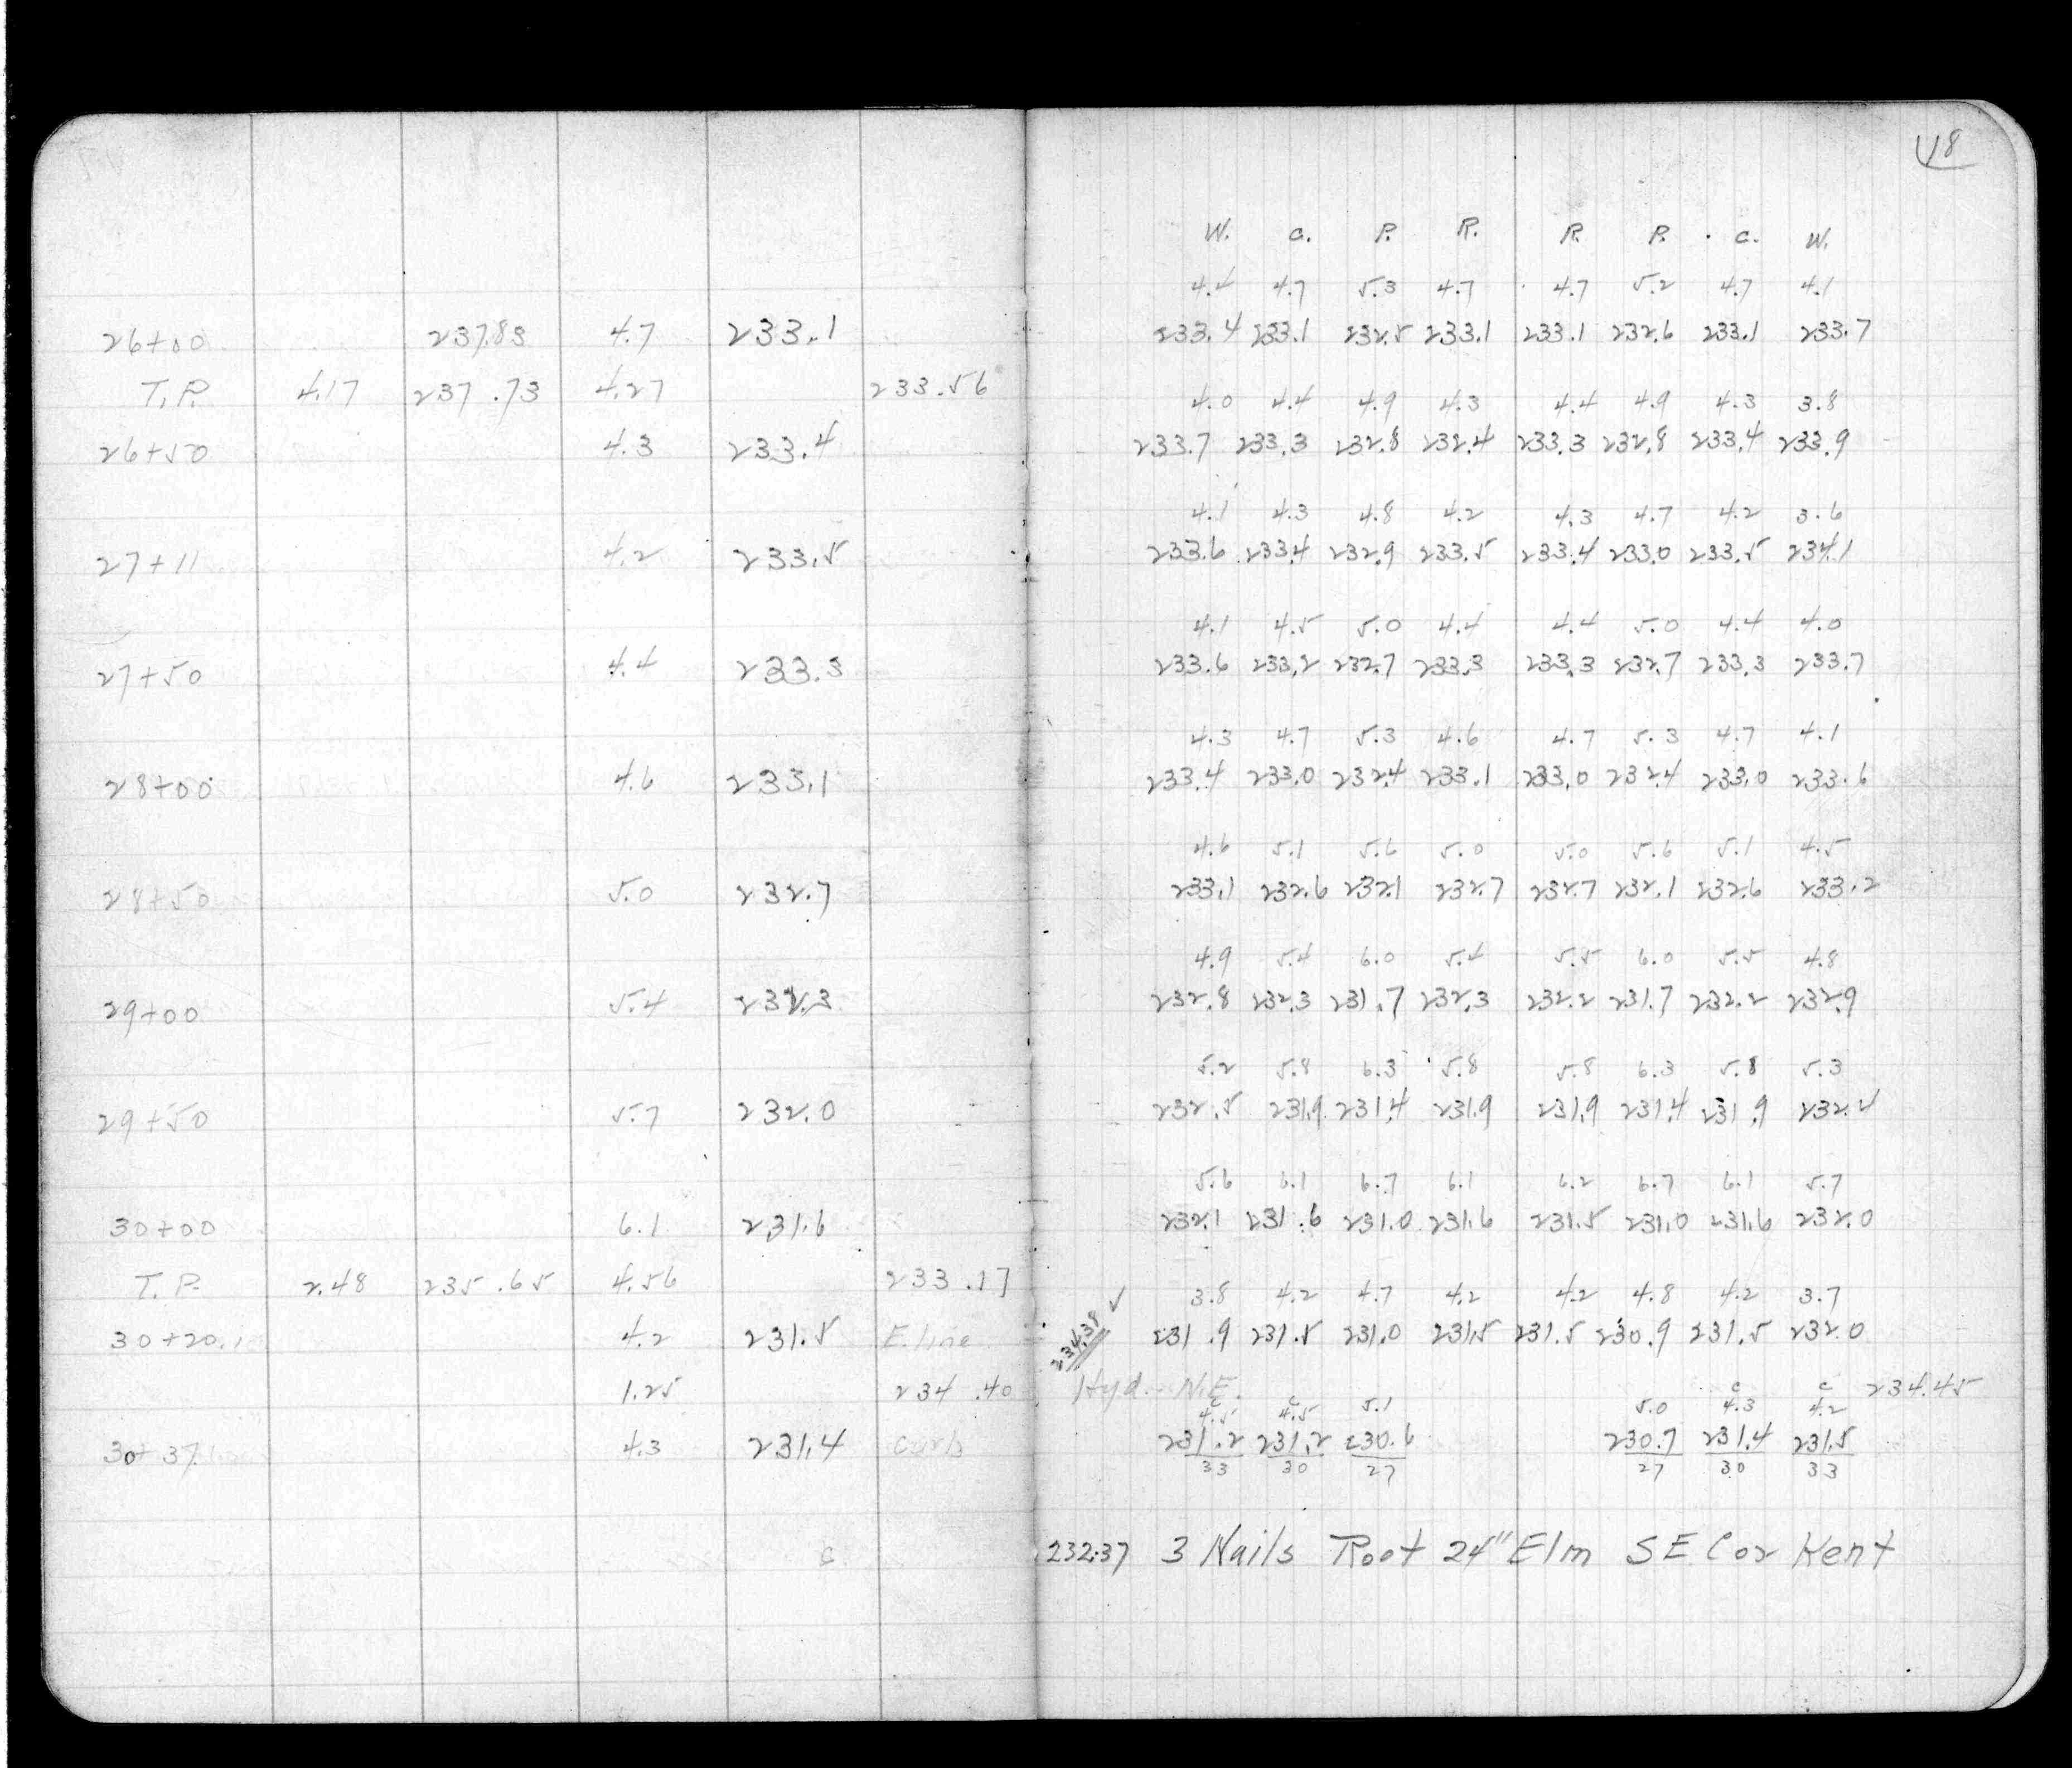 18
W. C. P. R. R. P. C. W.
4.4 4.7 5.3 4.7 4.7 5.2 4.7 4.1
26+00 237.83 4.7 233.1 233.4 233.1 232.5 233.1 233.1 232.6 233.1 233.7
T.P. 4.17 237.73 4.27 233.56
4.0 4.4 4.9 4.3 4.4 4.9 4.3 3.8
26+50 4.3 233.4 233.7 233.3 232.8 232.4 233.3 232.8 233.4 233.9
4.1 4.3 4.8 4.2 4.3 4.7 4.2 3.6
27+11 4.2 233.5 233.6 233.4 232.9 233.5 233.4 233.0 233.5 234.1
4.1 4.5 5.0 4.4 4.4 5.0 4.4 4.0
27+50 4.4 233.3 233.6 233.2 232.7 233.3 233.3 232.7 233.3 233.7
4.3 4.7 5.3 4.6 4.7 5.3 4.7 4.1
28+00 4.6 233.1 233.4 233.0 232.4 233.1 233.0 232.4 233.0 233.6
4.6 5.1 5.6 5.0 5.0 5.6 5.1 4.5
28+50 5.0 232.7 233.1 232.6 232.1 232.7 232.7 232.1 232.6 233.2
4.9 5.4 6.0 5.4 5.5 6.0 5.5 4.8
29+00 5.4 232.3 232.8 232.3 231.7 232.3 232.2 231.7 232.2 232.9
5.2 5.8 6.3 5.8 5.8 6.3 5.8 5.3
29+50 5.7 232.0 232.5 231.9 231.4 231.9 231.9 231.4 231.9 232.4
5.6 6.1 6.7 6.1 6.2 6.7 6.1 5.7
30+00 6.1 231.6 232.1 231.6 231.0 231.6 231.5 231.0 231.6 232.0
T.P. 2.48 235.65 4.56 233.17
3.8 4.2 4.7 4.2 4.2 4.8 4.2 3.7
30+20.1 4.2 231.5 E. line 234.38 ✓ 231.9 231.5 231.0 231.5 231.5 230.9 231.5 232.0
1.25 234.40 Hyd. N.E. 234.45
C C C C
4.5 4.5 5.1 5.0 4.3 4.2
30+37 4.3 231.4 Curb 231.2 231.2 230.6 230.7 231.4 231.5
33 30 27 27 30 33
C 232.37 3 Nails Root 24" Elm SE Cor Kent